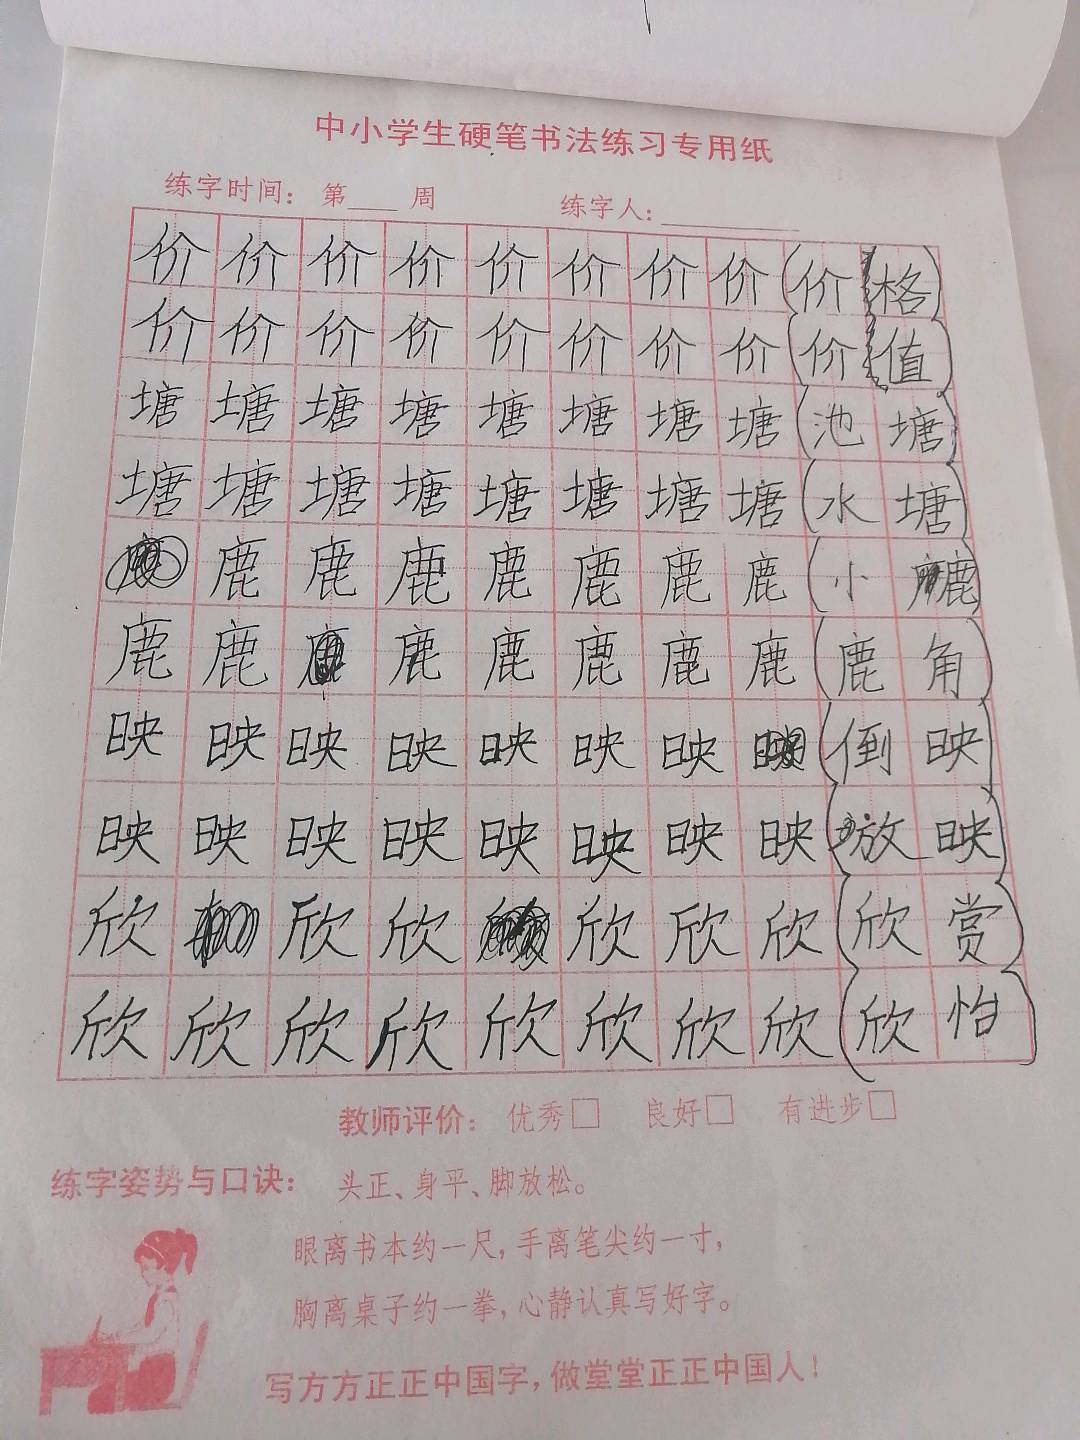 中小学生硬笔书法练习专用纸
练字时间： 第___周 练字人：________
价价价价价价价价（价格）
价价价价价价价价（价值）
塘塘塘塘塘塘塘塘（池塘）
塘塘塘塘塘塘塘塘（水塘）
鹿鹿鹿鹿鹿鹿鹿（小鹿）
鹿鹿鹿鹿鹿鹿鹿（鹿角）
映映映映映映映（倒映）
映映映映映映映映（放映）
欣欣欣欣欣欣（欣赏）
欣欣欣欣欣欣欣欣（欣怡）
教师评价： 优秀□ 良好□ 有进步□
练字姿势与口诀： 头正、身平、脚放松。
眼离书本约一尺，手离笔尖约一寸，
胸离桌子约一拳，心静认真写好字。
写方方正正中国字，做堂堂正正中国人！